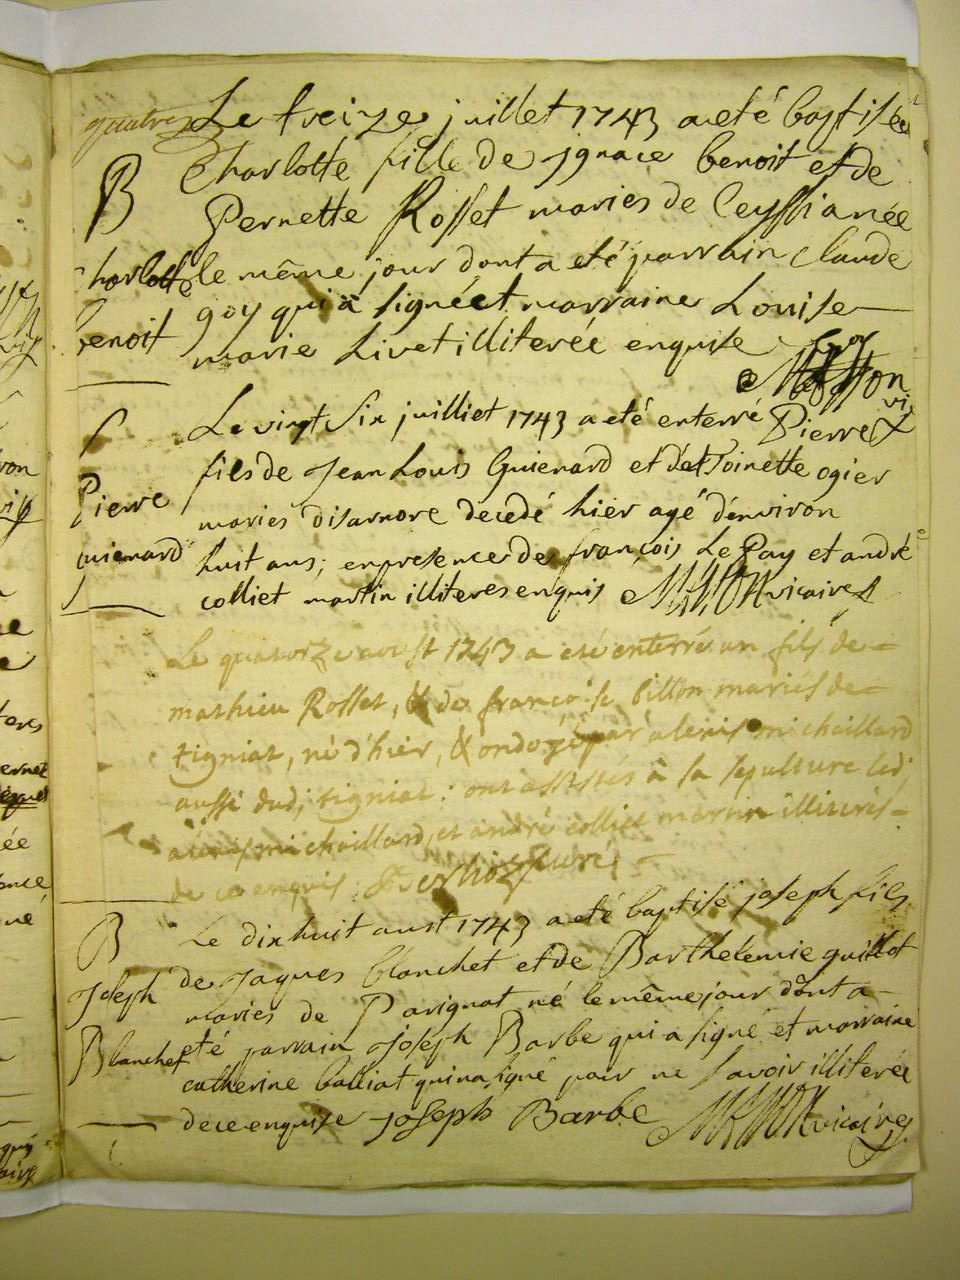 quatre
Le treize juillet 1743 a eté baptisée
B
Charlotte fille de jgnace benoit et de
Pernette Rosset mariés de leyssia née
Charlotte
le même jour dont a eté parrain Claude
benoit
goy qui a signé et marraine Louise
marie Livet illiterée enquise Goy
Masson vi
Le vingt six juilliet 1743 a eté enterré Pierre
S
fils de Jean Louis Guienard et d'ettoinette ogier
Pierre
mariés disarnore decedé hier agé d'environ
Guienard
huit ans; en presence de françois Le Pay et andré
colliet martin illiteres enquis Masson vicaire
Le quatorze aoust 1743 a eté enterré un fils de
mathieu Rosset, & de françoise billon mariés de
tigniat, né d'hier, & ondoyé par alexis michaillard
aussi dud; tigniat: ont assistés à sa sepulture led;
alexis michaillard, et andré colliet martin illiterés
de ce enquis curé
B
Le dix huit aust 1743 a eté baptisé joseph fils
Joseph
de Jaques blanchet et de Barthelemie guillot
mariés de Parignat né le même jour dont a
Blanchet
eté parrain Joseph Barbe qui a signé et marraine
catherine balliat qui na signé pour ne savoir illiterée
de ce enquise Joseph Barbe Masson vicaire